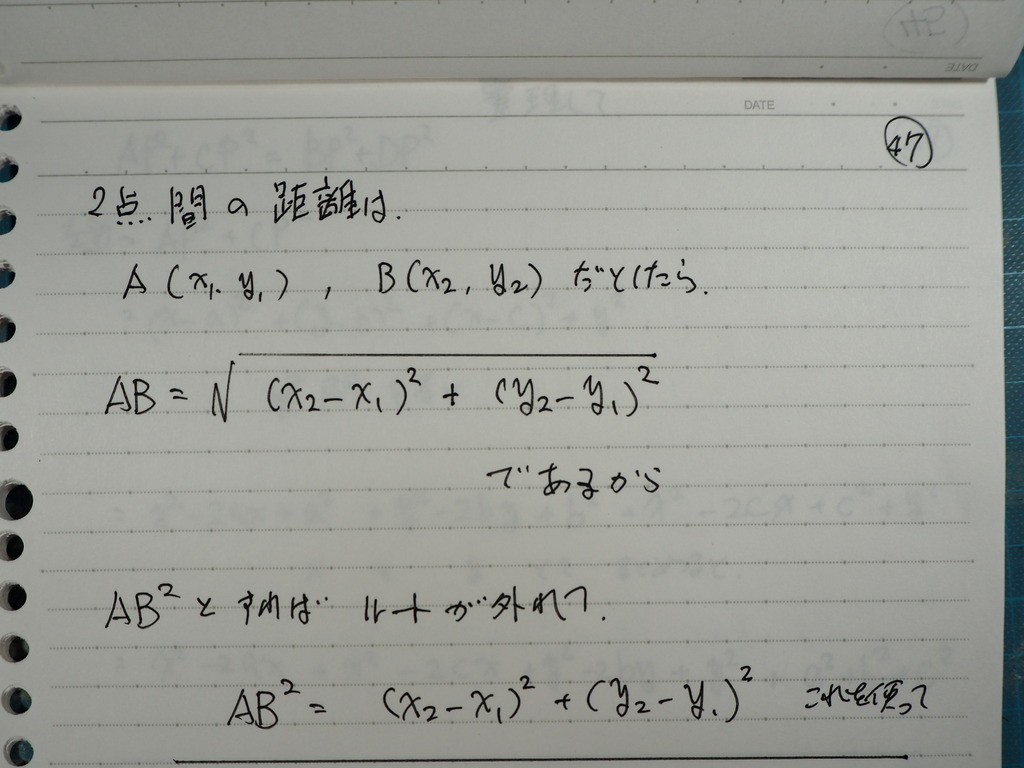 DATE
47
2点間の距離は.
A(x₁, y₁), B(x₂, y₂) だとしたら.
AB = √(x₂-x₁)² + (y₂-y₁)²
であるから
AB²とすればルートが外れて.
AB² = (x₂-x₁)² + (y₂-y₁)² これを使って